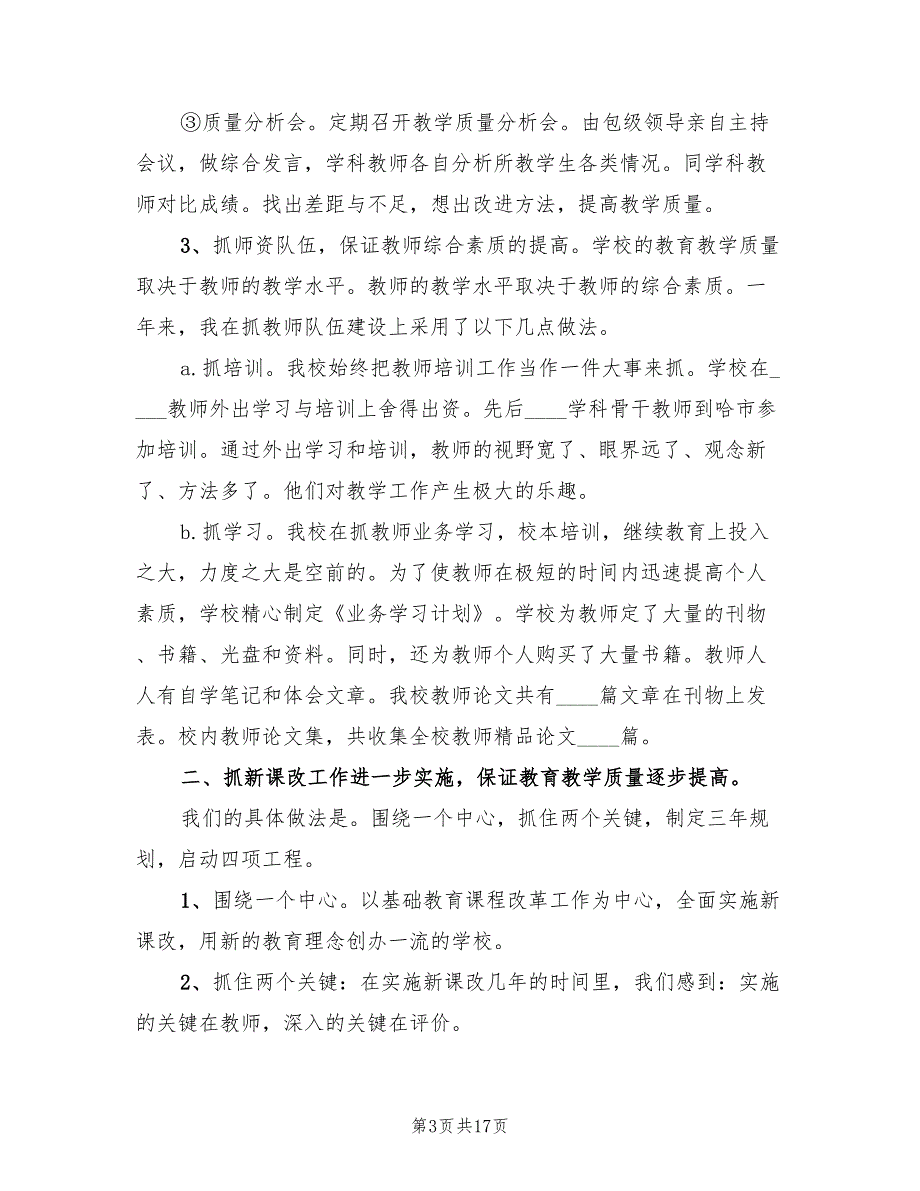 ③质量分析会。定期召开教学质量分析会。由包级领导亲自主持
会议，做综合发言，学科教师各自分析所教学生各类情况。同学科教
师对比成绩。找出差距与不足，想出改进方法，提高教学质量。
3、抓师资队伍，保证教师综合素质的提高。学校的教育教学质量
取决于教师的教学水平。教师的教学水平取决于教师的综合素质。一
年来，我在抓教师队伍建设上采用了以下几点做法。
a.抓培训。我校始终把教师培训工作当作一件大事来抓。学校在_
___教师外出学习与培训上舍得出资。先后____学科骨干教师到哈市参
加培训。通过外出学习和培训，教师的视野宽了、眼界远了、观念新
了、方法多了。他们对教学工作产生极大的乐趣。
b.抓学习。我校在抓教师业务学习，校本培训，继续教育上投入
之大，力度之大是空前的。为了使教师在极短的时间内迅速提高个人
素质，学校精心制定《业务学习计划》。学校为教师定了大量的刊物
、书籍、光盘和资料。同时，还为教师个人购买了大量书籍。教师人
人有自学笔记和体会文章。我校教师论文共有____篇文章在刊物上发
表。校内教师论文集，共收集全校教师精品论文____篇。
二、抓新课改工作进一步实施，保证教育教学质量逐步提高。
我们的具体做法是。围绕一个中心，抓住两个关键，制定三年规
划，启动四项工程。
1、围绕一个中心。以基础教育课程改革工作为中心，全面实施新
课改，用新的教育理念创办一流的学校。
2、抓住两个关键：在实施新课改几年的时间里，我们感到：实施
的关键在教师，深入的关键在评价。
第3页共17页